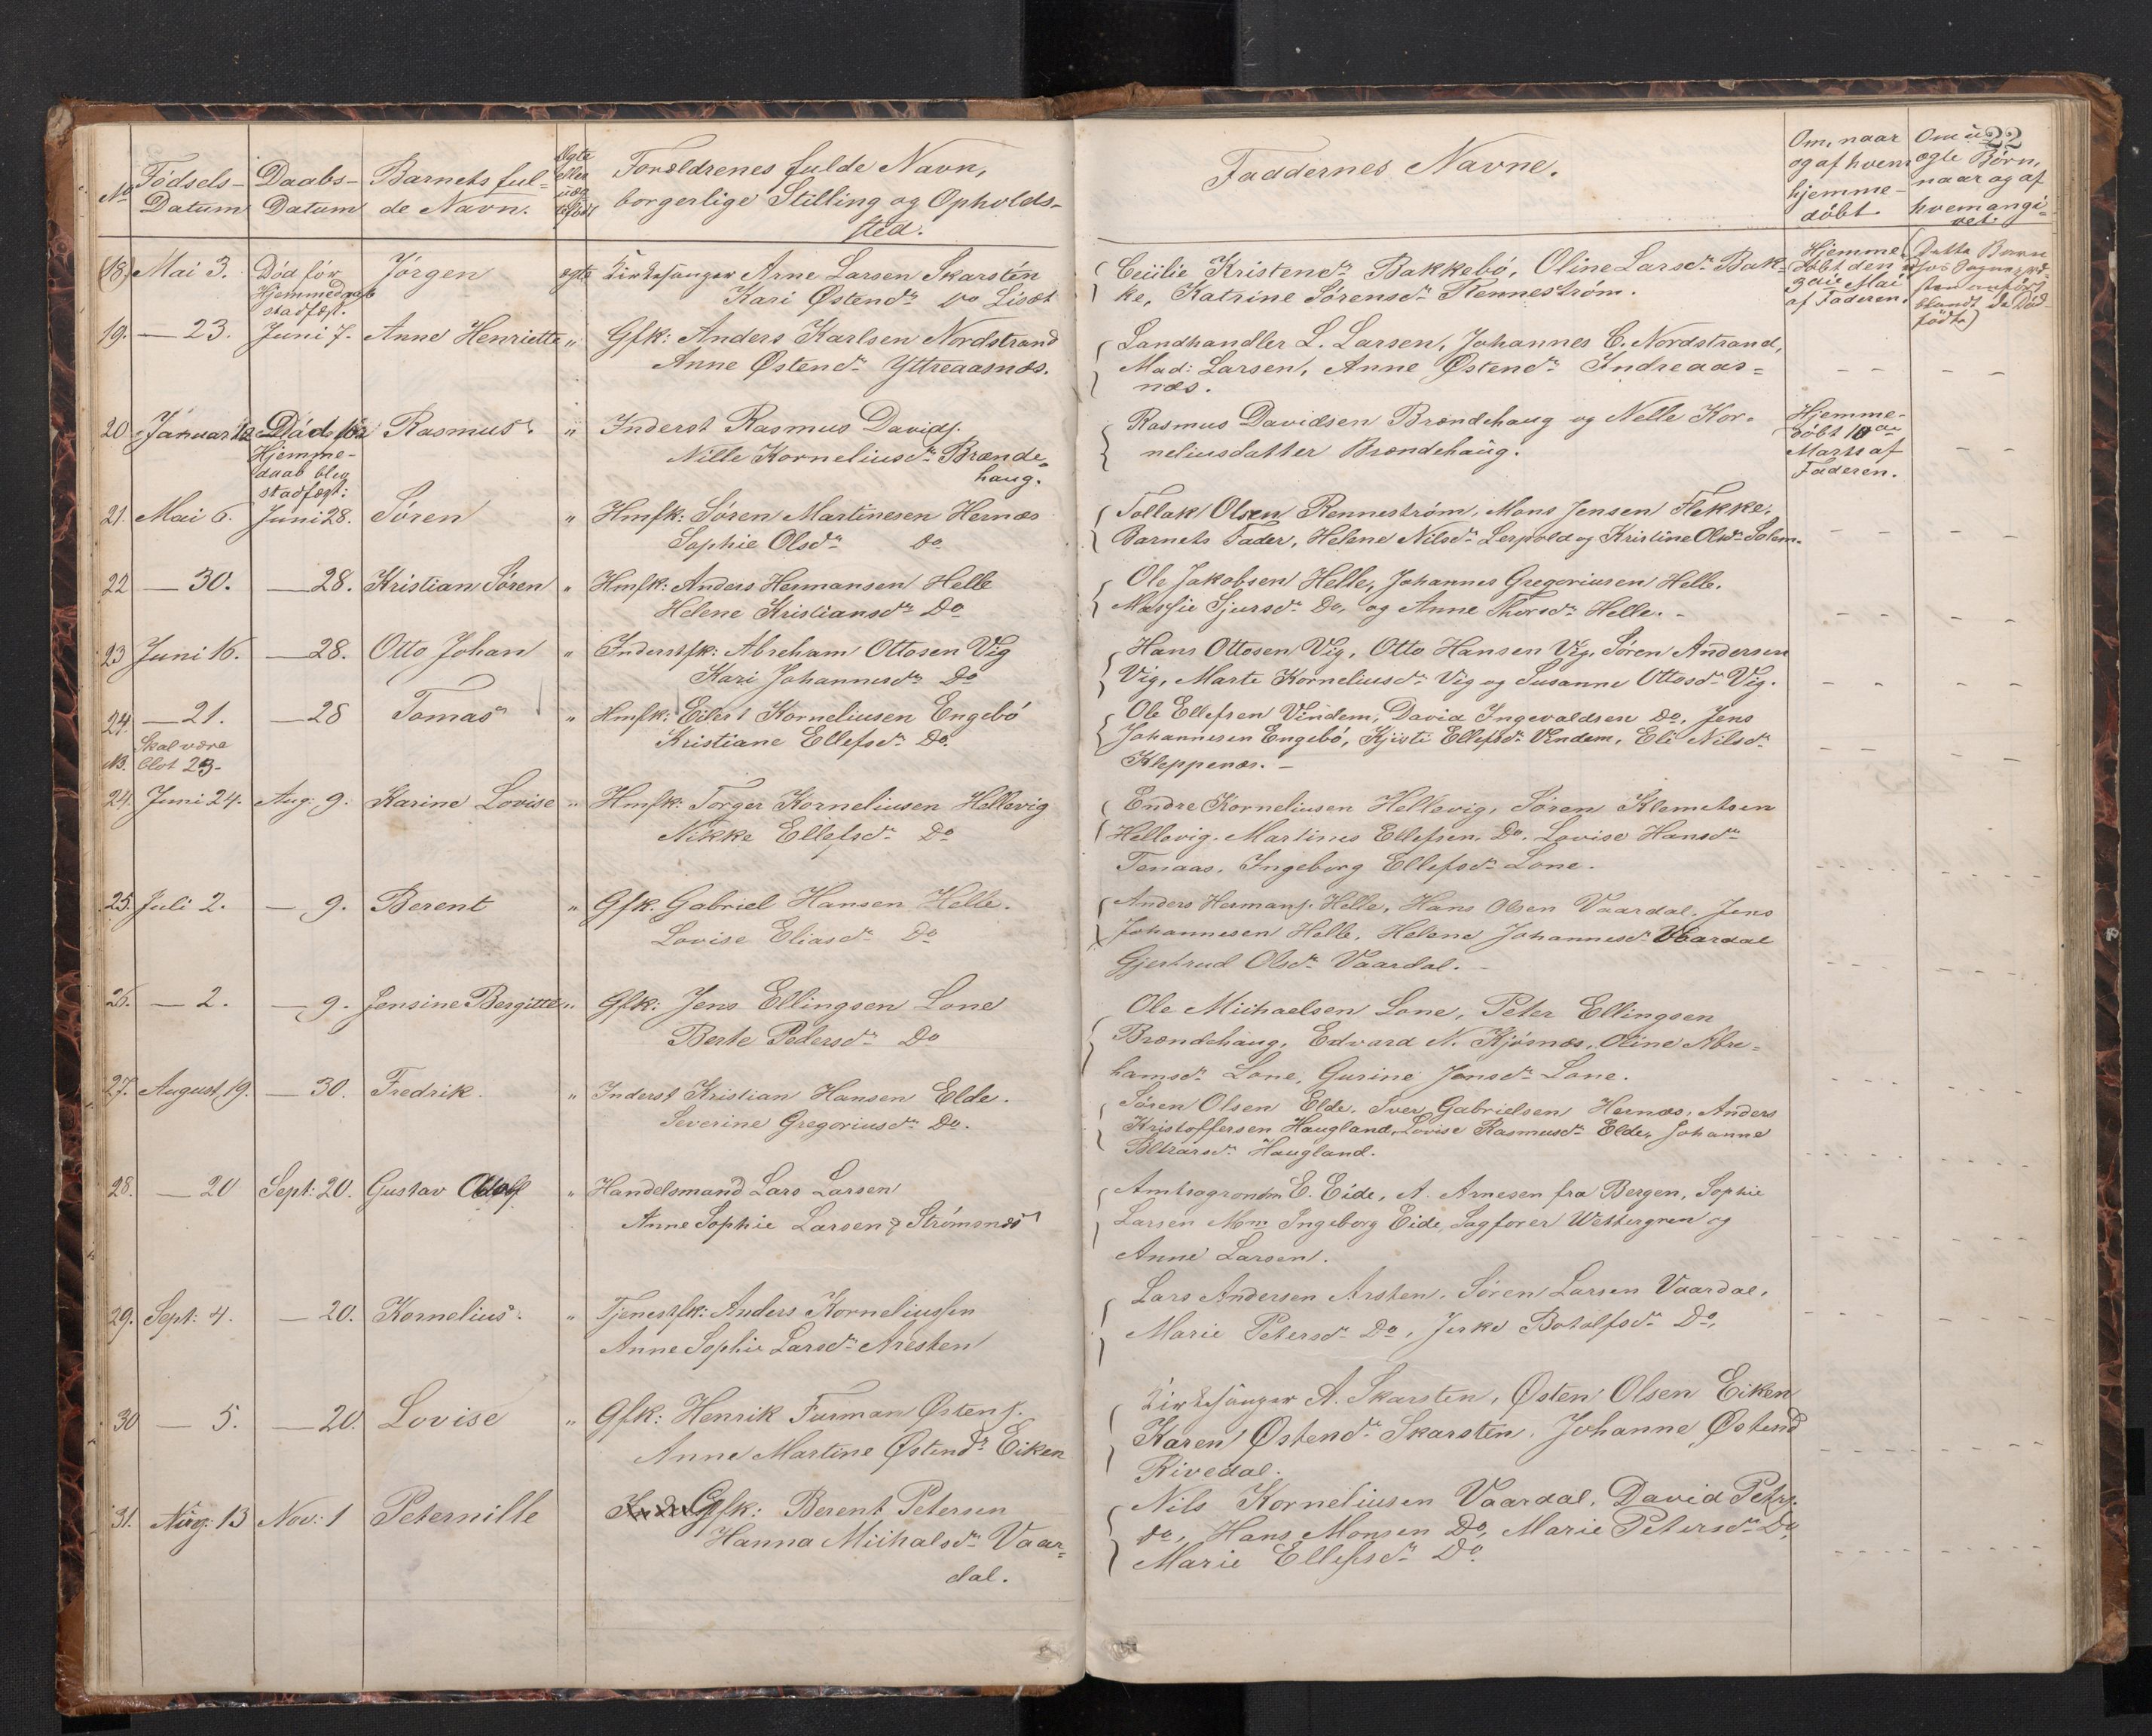 22
No
Fødsels-
Datum
Daabs-
Datum
Barnets ful-
de Navn.
Ægte
eller
uæg
tefødt
Forældrenes fulde Navn,
borgerlige Stilling og Opholds-
sted.
Faddernes Navne.
Om, naar
og af hvem
hjemme-
døbt.
Om u
ægte Børn,
naar og af
hvem angi-
vet.
(18) Mai 3. Død før Jørgen ægte Kirkesanger Arne Larsen Skarsten
Hjemmedaab
stadfæst.
Kari Østensdr Do Lisæt
Cecilie Kristendr Bakkebø, Oline Larsdr Bak-
ke, Katrine Sørensdr Renneström.
Hjemme-
døbt den
3die Mai
af Faderen.
(Dette Barn
blandt de Død
fødte)
19. — 23. Juni 7. Anne Henriette " Gfk: Anders Karlsen Nordstrand
Anne Østendr Yttreaasnæs.
Landhandler L. Larsen, Johannes C. Nordstrand,
Mad: Larsen, Anne Østendr Indreaas=
næs.
20 Januar Død før Rasmus. " Inderst Rasmus Davids.
Hjemme-
daab blev
stadfæst:
Nille Korneliusdr Brænde=
haug.
Rasmus Davidsen Brændehaug og Nelle Kor-
neliusdatter Brændehaug.
Hjemme-
døbt 10de
Marts af
Faderen.
21. Mai 6. Juni 28. Søren " Hmfk: Søren Martinesen Hernæs
Sophie Olsdr Do
Tollak Olsen Renneström, Mons Jensen Flekke,
Barnets Fader, Helene Nilsdr Lerpold og Kristine Olsdr Solem.
22 — 30. — 28. Kristian Søren " Hmfk: Anders Hermansen Helle
Helene Kristiansdr Do
Ole Jakobsen Helle, Johannes Gregoriusen Helle.
Massie Sjursdr Do, og Anne Thorsdr Helle. -
23 Juni 16. — 28. Otto Johan " Inderstfk: Abreham Ottosen Vig
Kari Johannesdr Do
Hans Ottosen Vig, Otto Hansen Vig, Søren Andersen
Vig, Marte Korneliusdr Vig og Susanne Ottosdr Vig.
24. — 21. — 28 Tomas " Hmfk: Eilert Korneliusen Engebø
Kristiane Ellefsdr Do.
Skal være
NB. blot 23-
Ole Ellefsen Vindem, David Ingevaldsen Do, Jens
Johannesen Engebø, Kjisti Ellefsdr Vindem, Eli Nilsdr
Kleppenæs. -
24. Juni 24. Aug: 9. Karine Lovise " Hmfk: Torger Korneliusen Hellevig
Nikke Ellefsdr Do
Endre Korneliusen Hellevig, Søren Klemetsen
Hellevig. Martines Ellefsen, Do. Lovise Hansdr
Tenaas, Ingeborg Ellefsdr Lone.
25. Juli 2. — 9. Berent " Gfk: Gabriel Hansen Helle.
Lovise Eliasdr Do
Anders Hermans. Helle, Hans Olsen Vaardal. Jens
Johannesen Helle, Helene Johannesdr Vaardal
Gjertrud Olsdr Vaardal. -
26. — 2. — 9. Jensine Bergitte " Gfk: Jens Ellingsen Lone
Berte Pedersdr Do
Ole Michaelsen Lone, Peter Ellingsen
Brændehaug, Edvard N. Kjøsnæs, Oline Abre=
hamsdr Lone, Gurine Jonsdr Lone.
27. August 19. — 30. Fredrik. " Inderst Kristian Hansen Elde.
Severine Gregoriusdr Do.
Søren Olsen Elde, Iver Gabrielsen Hernæs, Anders
Kristoffersen Haugland, Lovise Rasmusdr Elde, Johanne
Haugland.
28. — 20 Sept: 20. Gustav Adolf " Handelsmand Lars Larsen
Anne Sophie Larsen Strømsnæs
Amtsagronom E. Eide, A. Arnesen fra Bergen, Sophie
Larsen Ingeborg Eide, Sagfører Wettergren og
Anne Larsen.
29. Sept: 4. — 20. Kornelius. " Tjenestfk: Anders Korneliussen
Anne Sophie Larsdr Aresten
Lars Andersen Arsten, Søren Larsen Vaardal,
Marie Petersdr Do, Jerke Botolfsdr Do,
30 — 5. — 20. Lovise " Gfk: Henrik Furman Østens.
Anne Martine Østendr Eiken
Kirkesanger A. Skarsten, Østen Olsen Eiken
Karen Østendr Skarsten, Johanne Østend
Rivedal.
31. Aug: 13 Nov: 1 Peternille Gfk: Berent Petersen
Hanna Michalsdr Vaar=
dal.
Nils Korneliusen Vaardal, David Peters.
Do, Hans Monsen Do, Marie Petersdr Do,
Marie Ellefsdr Do.